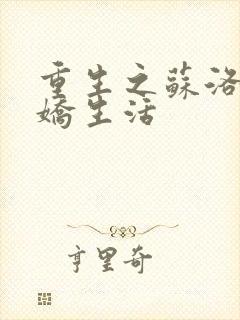 重生之蘇洛
嬌生活
亨里奇